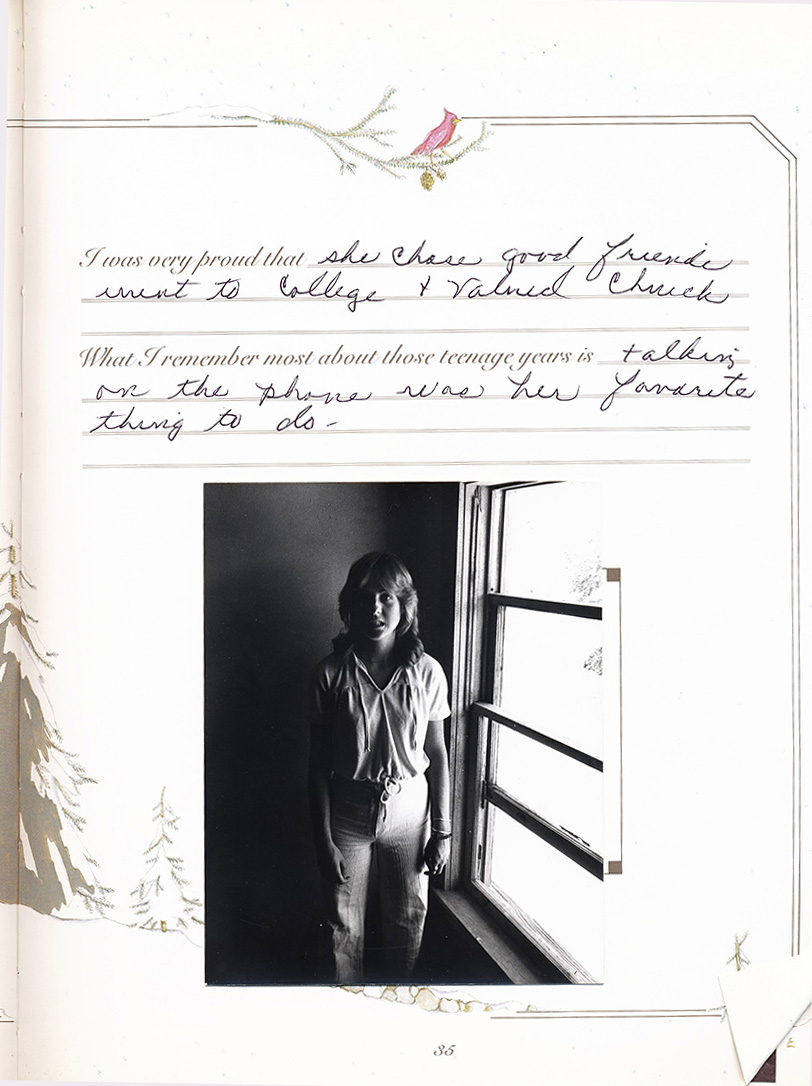 I was very proud that she chose good friends
went to College + Valued Church
What I remember most about those teenage years is talking
on the phone was her favorite
thing to do -
35